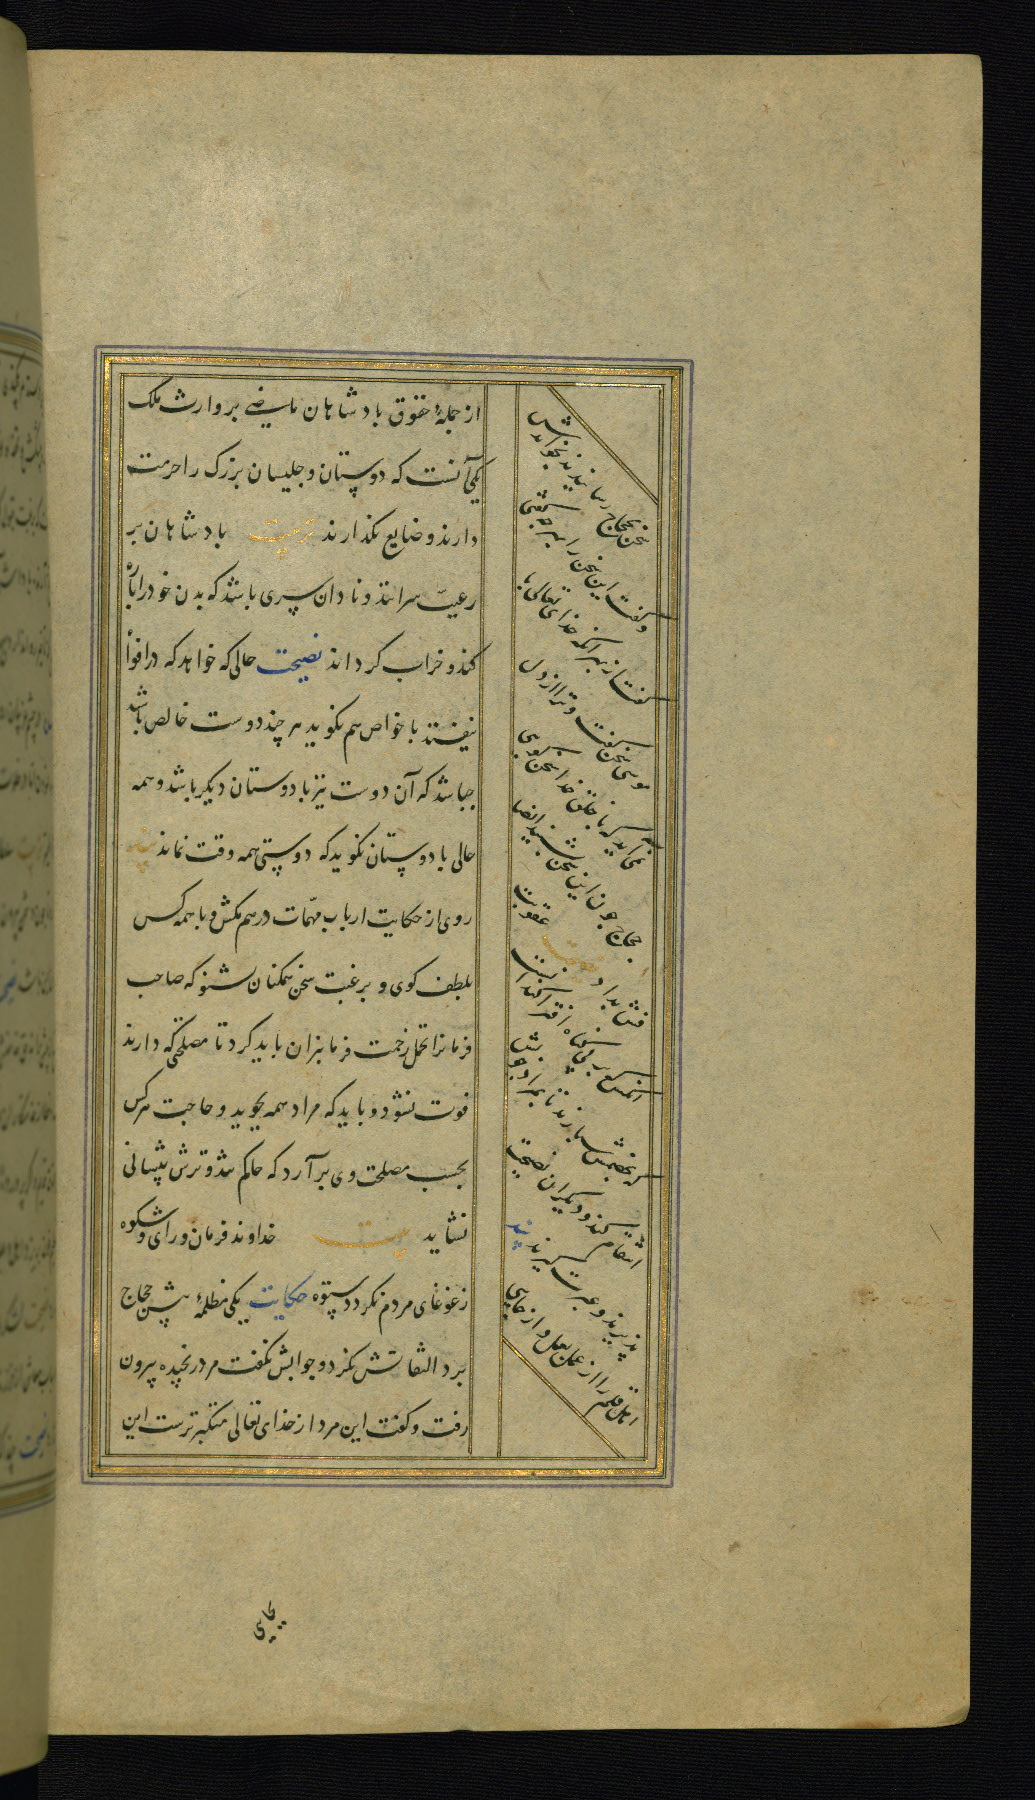 از جملهٔ حقوق بادشاهان ماضی بر وارث ملک
یکی آنست که دوستان و جلیسان بزرک را حرمت
دارند و ضایع نکذارند تربیت بادشاهان بر
رعیت سرانند و نادان سری باشد که بدن خود را پاره
کند و خراب کرداند نصیحت حالی که خواهد که در افواه
نیفتند با خواص هم نکوید هر چند دوست خالص باشد
چه باشد که آن دوست نیز با دوستان دیکر باشد و همه
حالی با دوستان نکوید که دوستی همه وقت نماند پند
روی از حکایت ارباب مهمات درهم مکش و با همه کس
بلطف کوی و برغبت سخن ممکنان شنو که صاحب
فرمانرا تحمل زحمت فرمانبران باید کرد تا مصلحتی که دارند
فوت نشود و باید که مراد همه بجوید و حاجت هر کس
بحسب مصلحت وی برآرد که حاکم تند و ترش پیشانی
نشاید بیت خداوند فرمان و رای و شکوه
ز غوغای مردم نکردد ستوه حکایت یکی مظلمهٔ پیش حجاج
برد التفاتش نکرد و جوابش نکفت مرد رنجیده بیرون
رفت و کفت این مرد از خدای تعالی متکبرترست این
سخن بحجاج رسانیدند بخواندش
و کفت این سخن را بهر چه کفتی
کفت از بهر آنکه خدای تعالی با
موسی سخن کفت و ترا از دل
نمی آید که با خلق خدا سخن کوی
حجاج چون این سخن بشنید انصا
فش بداد عقوبت
آنکس که بی کناه افتد
که خصمش سپارند تا بمراد خویش
انتقام کند و دیکران نصیحت
پذیرند و عبرت کیرند پند
اهل قلم را از عمل و از جای
بجای